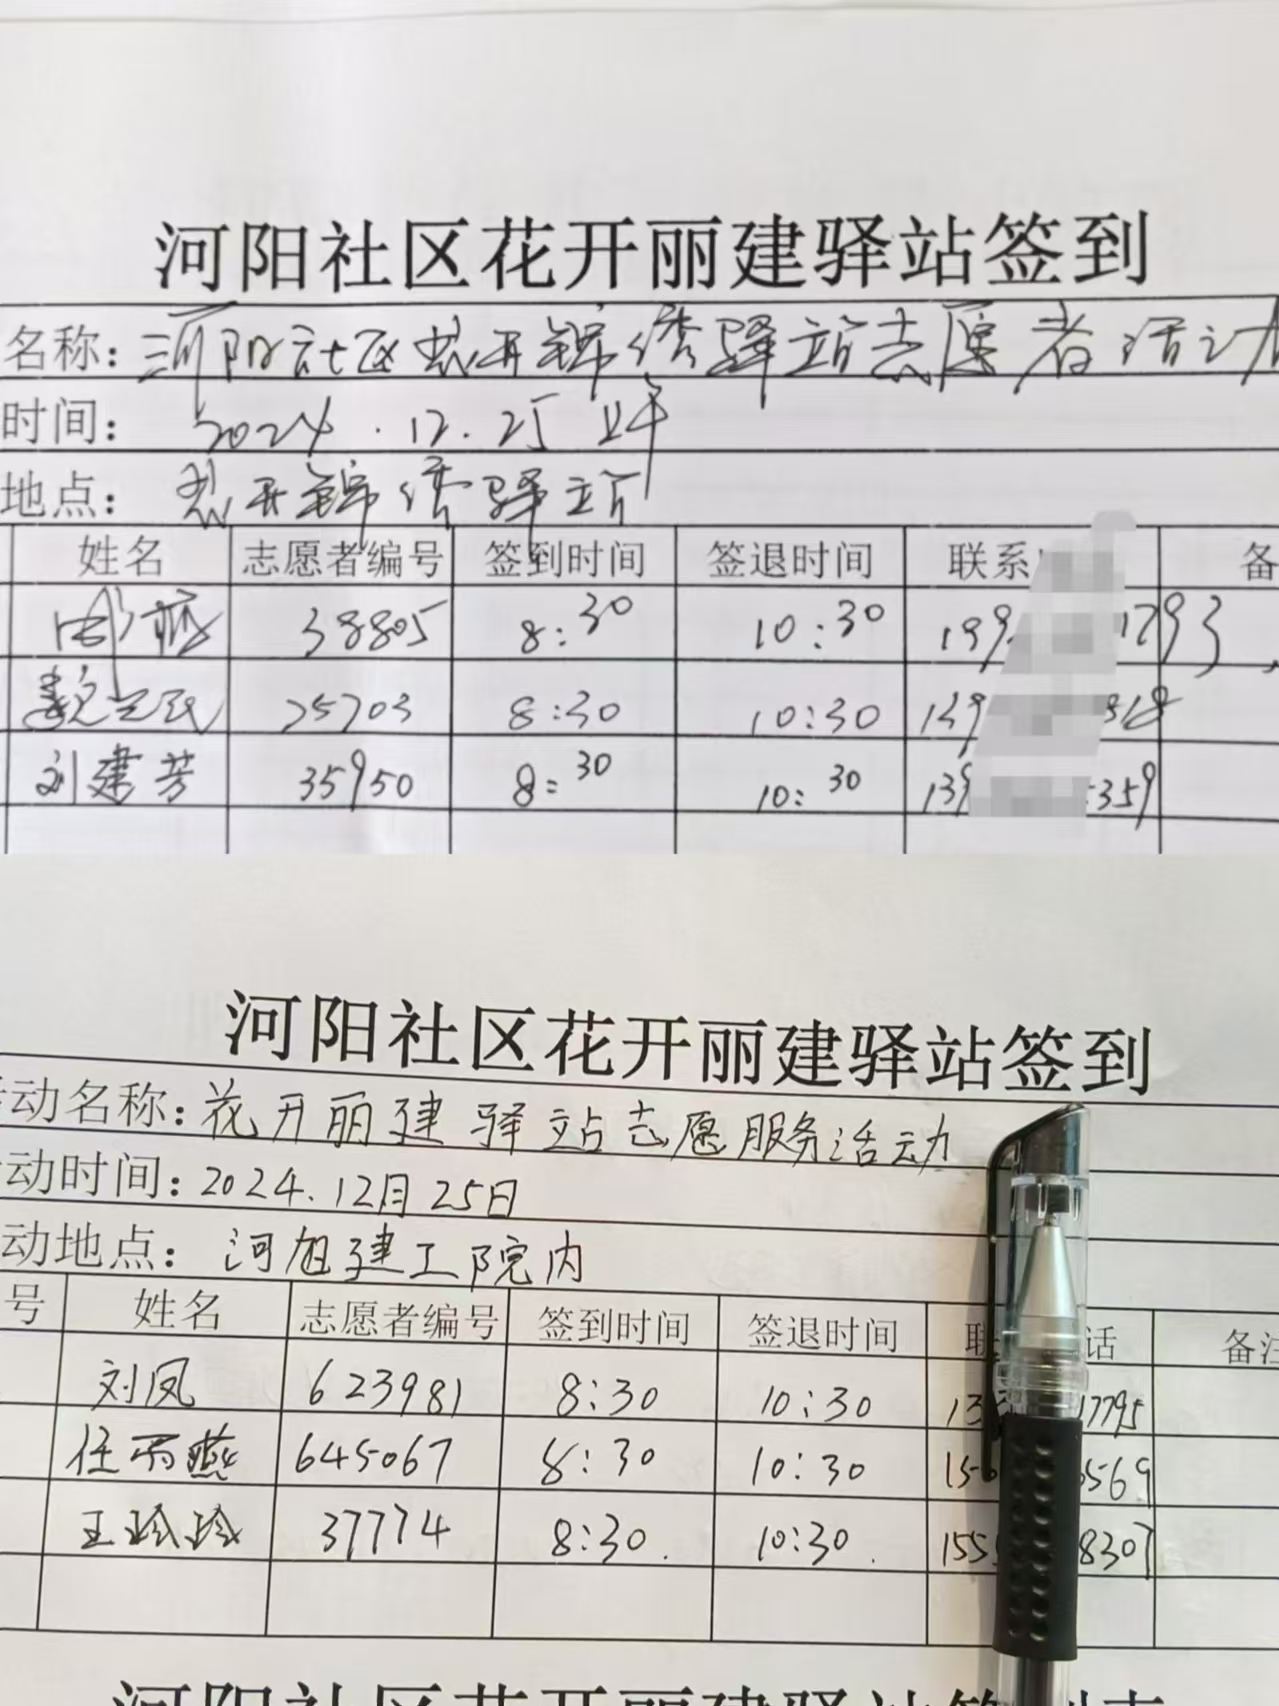 河阳社区花开丽建驿站签到
名称：河阳社区花开锦绣驿站志愿者活动
时间：2024.12.25 上午
地点：花开锦绣驿站
姓名 志愿者编号 签到时间 签退时间 联系 备
38805 8:30 10:30 199 1793
魏兰民 25703 8:30 10:30 139 318
刘建芳 35950 8:30 10:30 139 359
河阳社区花开丽建驿站签到
动名称：花开丽建驿站志愿服务活动
动时间：2024.12月25日
动地点：河旭建工院内
号 姓名 志愿者编号 签到时间 签退时间 联 话 备注
刘凤 623981 8:30 10:30 13 17795
任雨燕 645067 8:30 10:30 150 569
王玲玲 37774 8:30. 10:30. 155 8307
河阳社区花开丽建驿站签到表